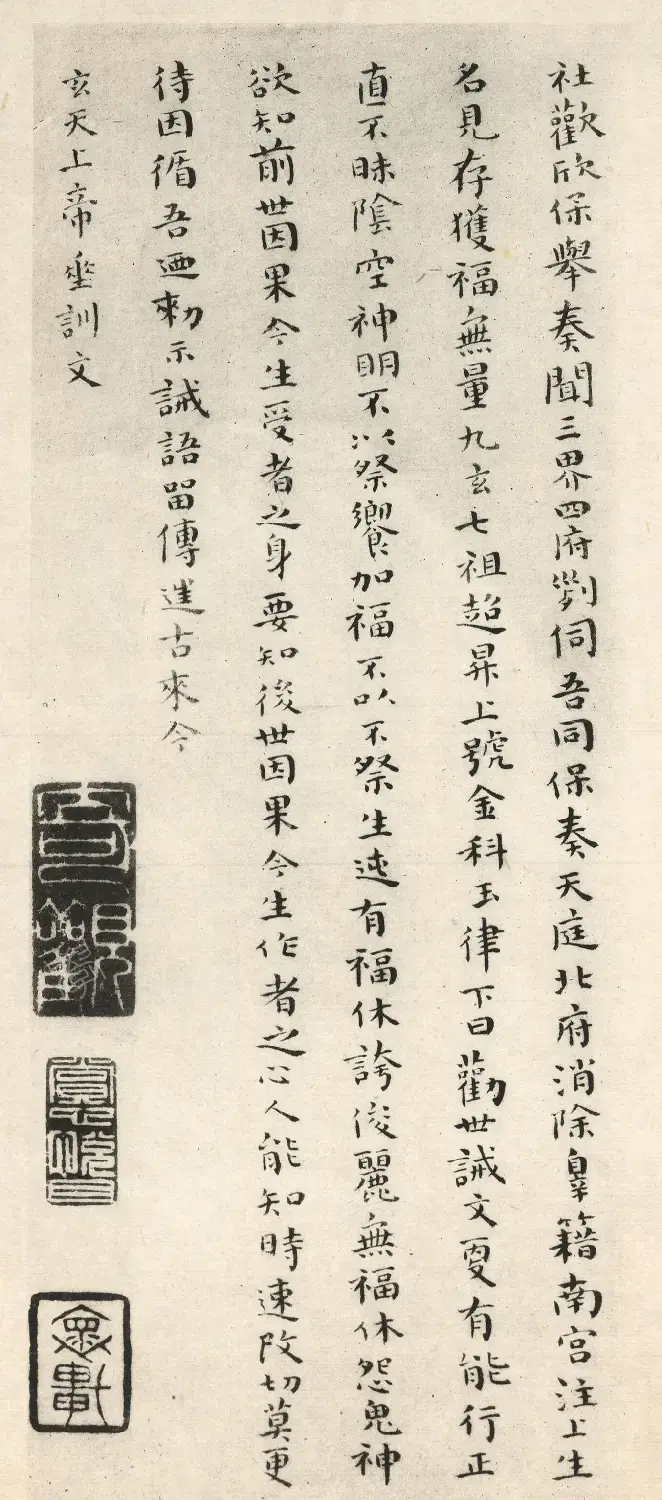 社歡欣保舉奏聞三界四府劄伺吾同保奏天庭北府消除辠籍南宫注上生
名見存獲福無量九玄七祖超昇上號金科玉律下曰勸世誡文叓有能行正
直不昧陰空神明不以祭饗加福不以不祭生迍有福休誇俊麗無福休怨鬼神
欲知前世因果今生受者之身要知後世因果今生作者之心人能知時速改切莫更
待因循吾迺勑示誡語畱傳進古來今
玄天上帝垂訓文